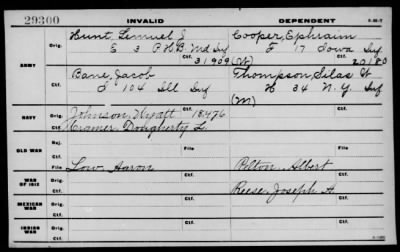 29300 INVALID DEPENDENT
ARMY Orig. Hunt, Lemuel J Cooper, Ephraim
E 3 P.H.B. Md Inf F 17 Iowa Inf
Ctf. 31909 (W) Ctf. 20180
Orig. Bane, Jacob Thompson, Silas W
I 104 Ill Inf H 34 N.Y. Inf
Ctf. (M) Ctf.
NAVY Orig. Johnson, Wyatt 18476 Orig.
Ctf. Cramer, Dougherty L. Ctf.
OLD WAR File File
Ctf. Ctf.
WAR OF 1812 File Low, Aaron File Pelton, Albert
Ctf. Ctf. Reese, Joseph A
MEXICAN WAR Orig. Orig.
Ctf. Ctf.
INDIAN WAR Orig. Orig.
Ctf. Ctf.